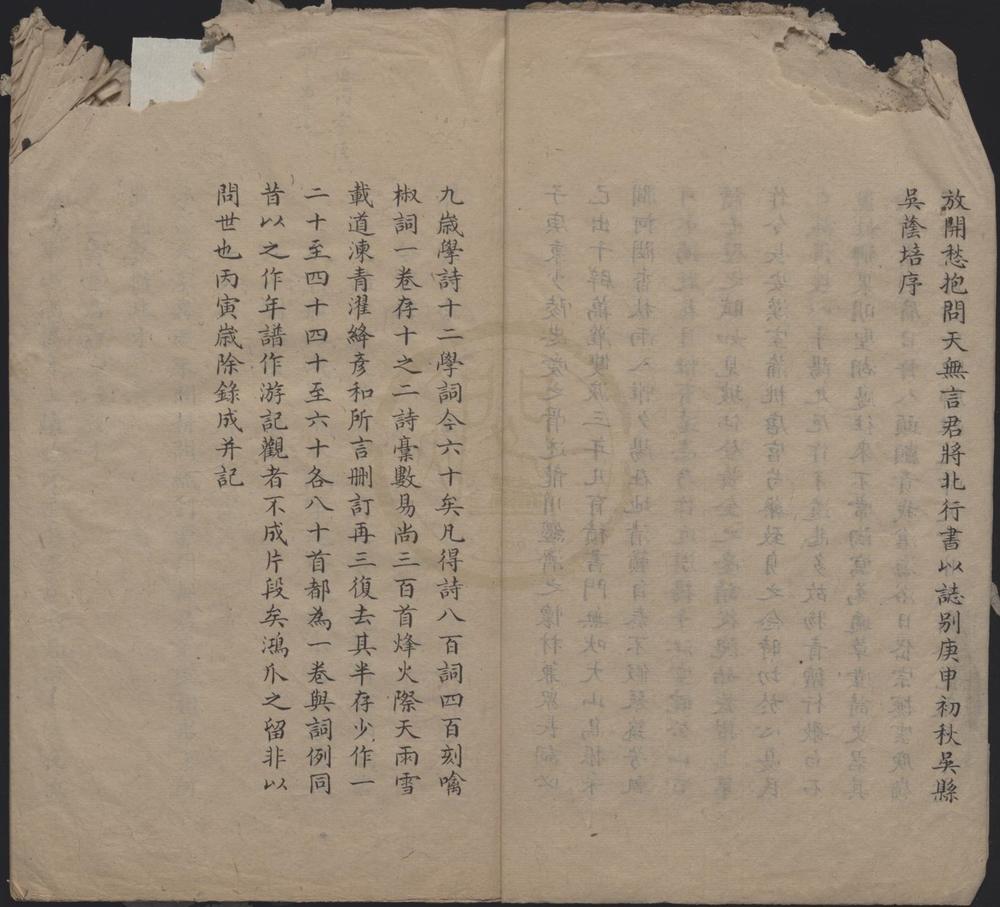 放開愁抱問天無言君將北行書以誌別庚申初秋吳縣
吳蔭培序
九歲學詩十二學詞今六十矣凡得詩八百詞四百刻噙
椒詞一卷存十之二詩稾數易尚三百首烽火際天雨雪
載道涷青濯絳彥和所言刪訂再三復去其半存少作一
二十至四十四十至六十各八十首都為一卷與詞例同
昔以之作年譜作游記觀者不成片段矣鴻爪之留非以
問世也丙寅歲除錄成并記